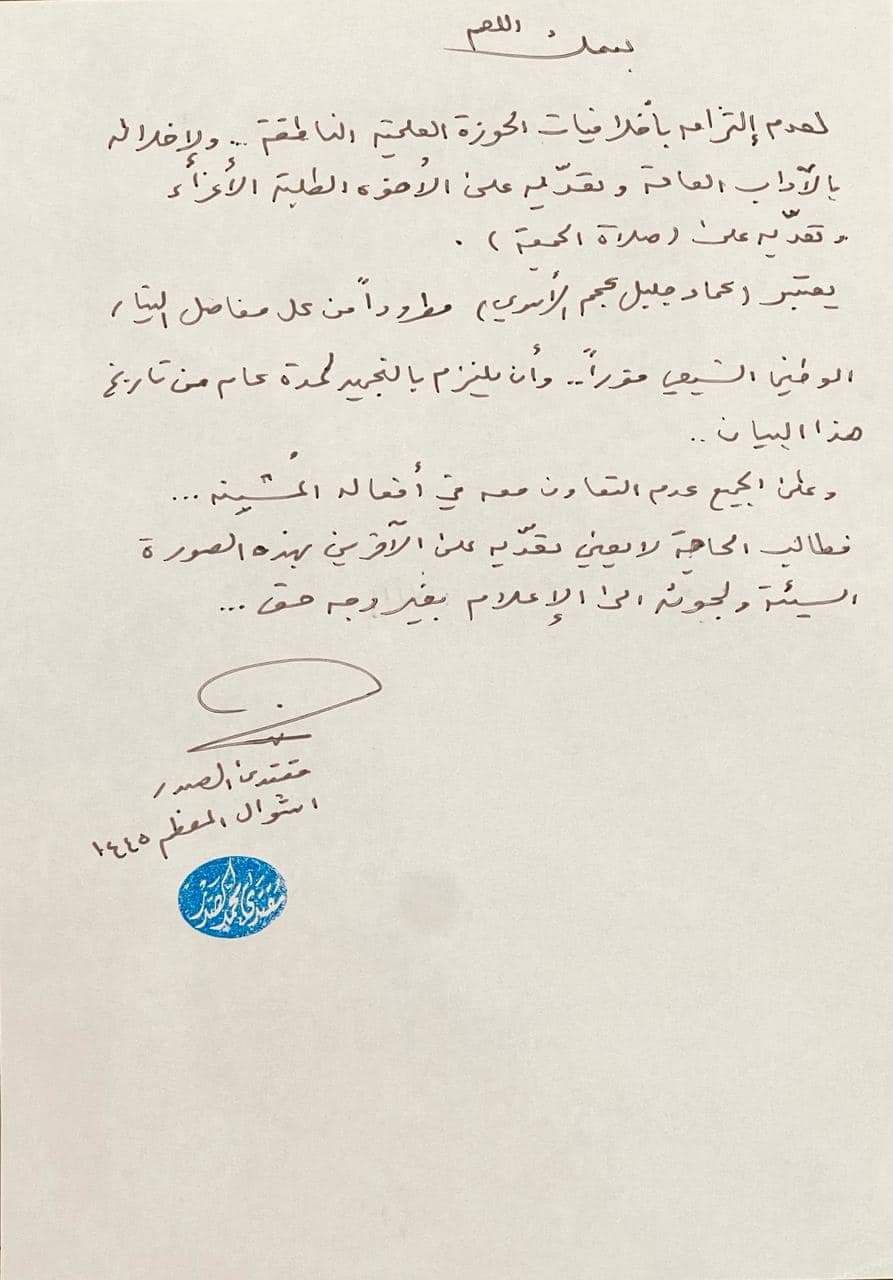 بسمك اللهم
لعدم إلتزامه بأخلاقيات الحوزة العلمية الناطقة... ولإخلاله
بالآداب العامة وتعدّيه على الأخوة الطلبة الأعزاء
وتعدّيه على (صلاة الجمعة).
يعتبر (عماد جليل عجم الأسدي) مطروداً من كل مفاصل التيار
الوطني الشيعي فوراً.. وأن يلتزم بالتجميد لمدة عام من تاريخ
هذا البيان..
وعلى الجميع عدم التعاون معه في أفعاله المُشينة...
فطالب الحاجة لا يعني تعدّيه على الآخرين بهذه الصورة
السيئة ولجوئه الى الإعلام بغير وجه حق...
مقتدى الصدر
١ شوال المعظم ١٤٤٥
مقتدى محمد الصدر